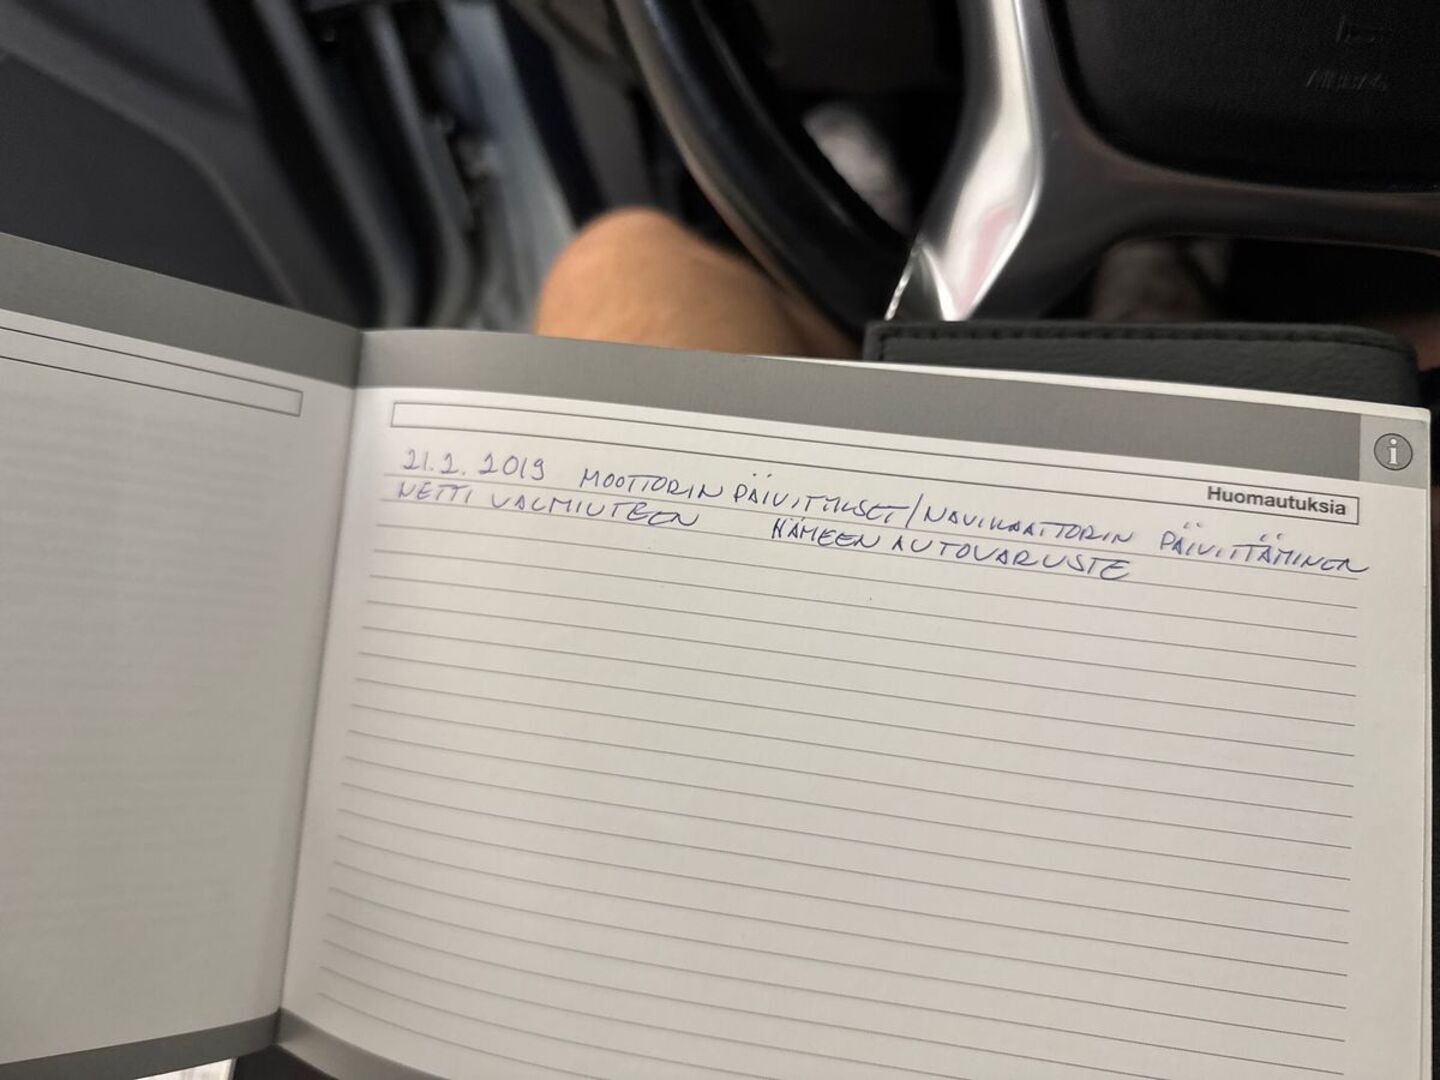 Huomautuksia
21.2.2019 MOOTTORIN PÄIVITYKSET/NAVIKAATTORIN PÄIVITTÄMINEN
NETTI VALMIUTEEN HÄMEEN AUTOVARUSTE